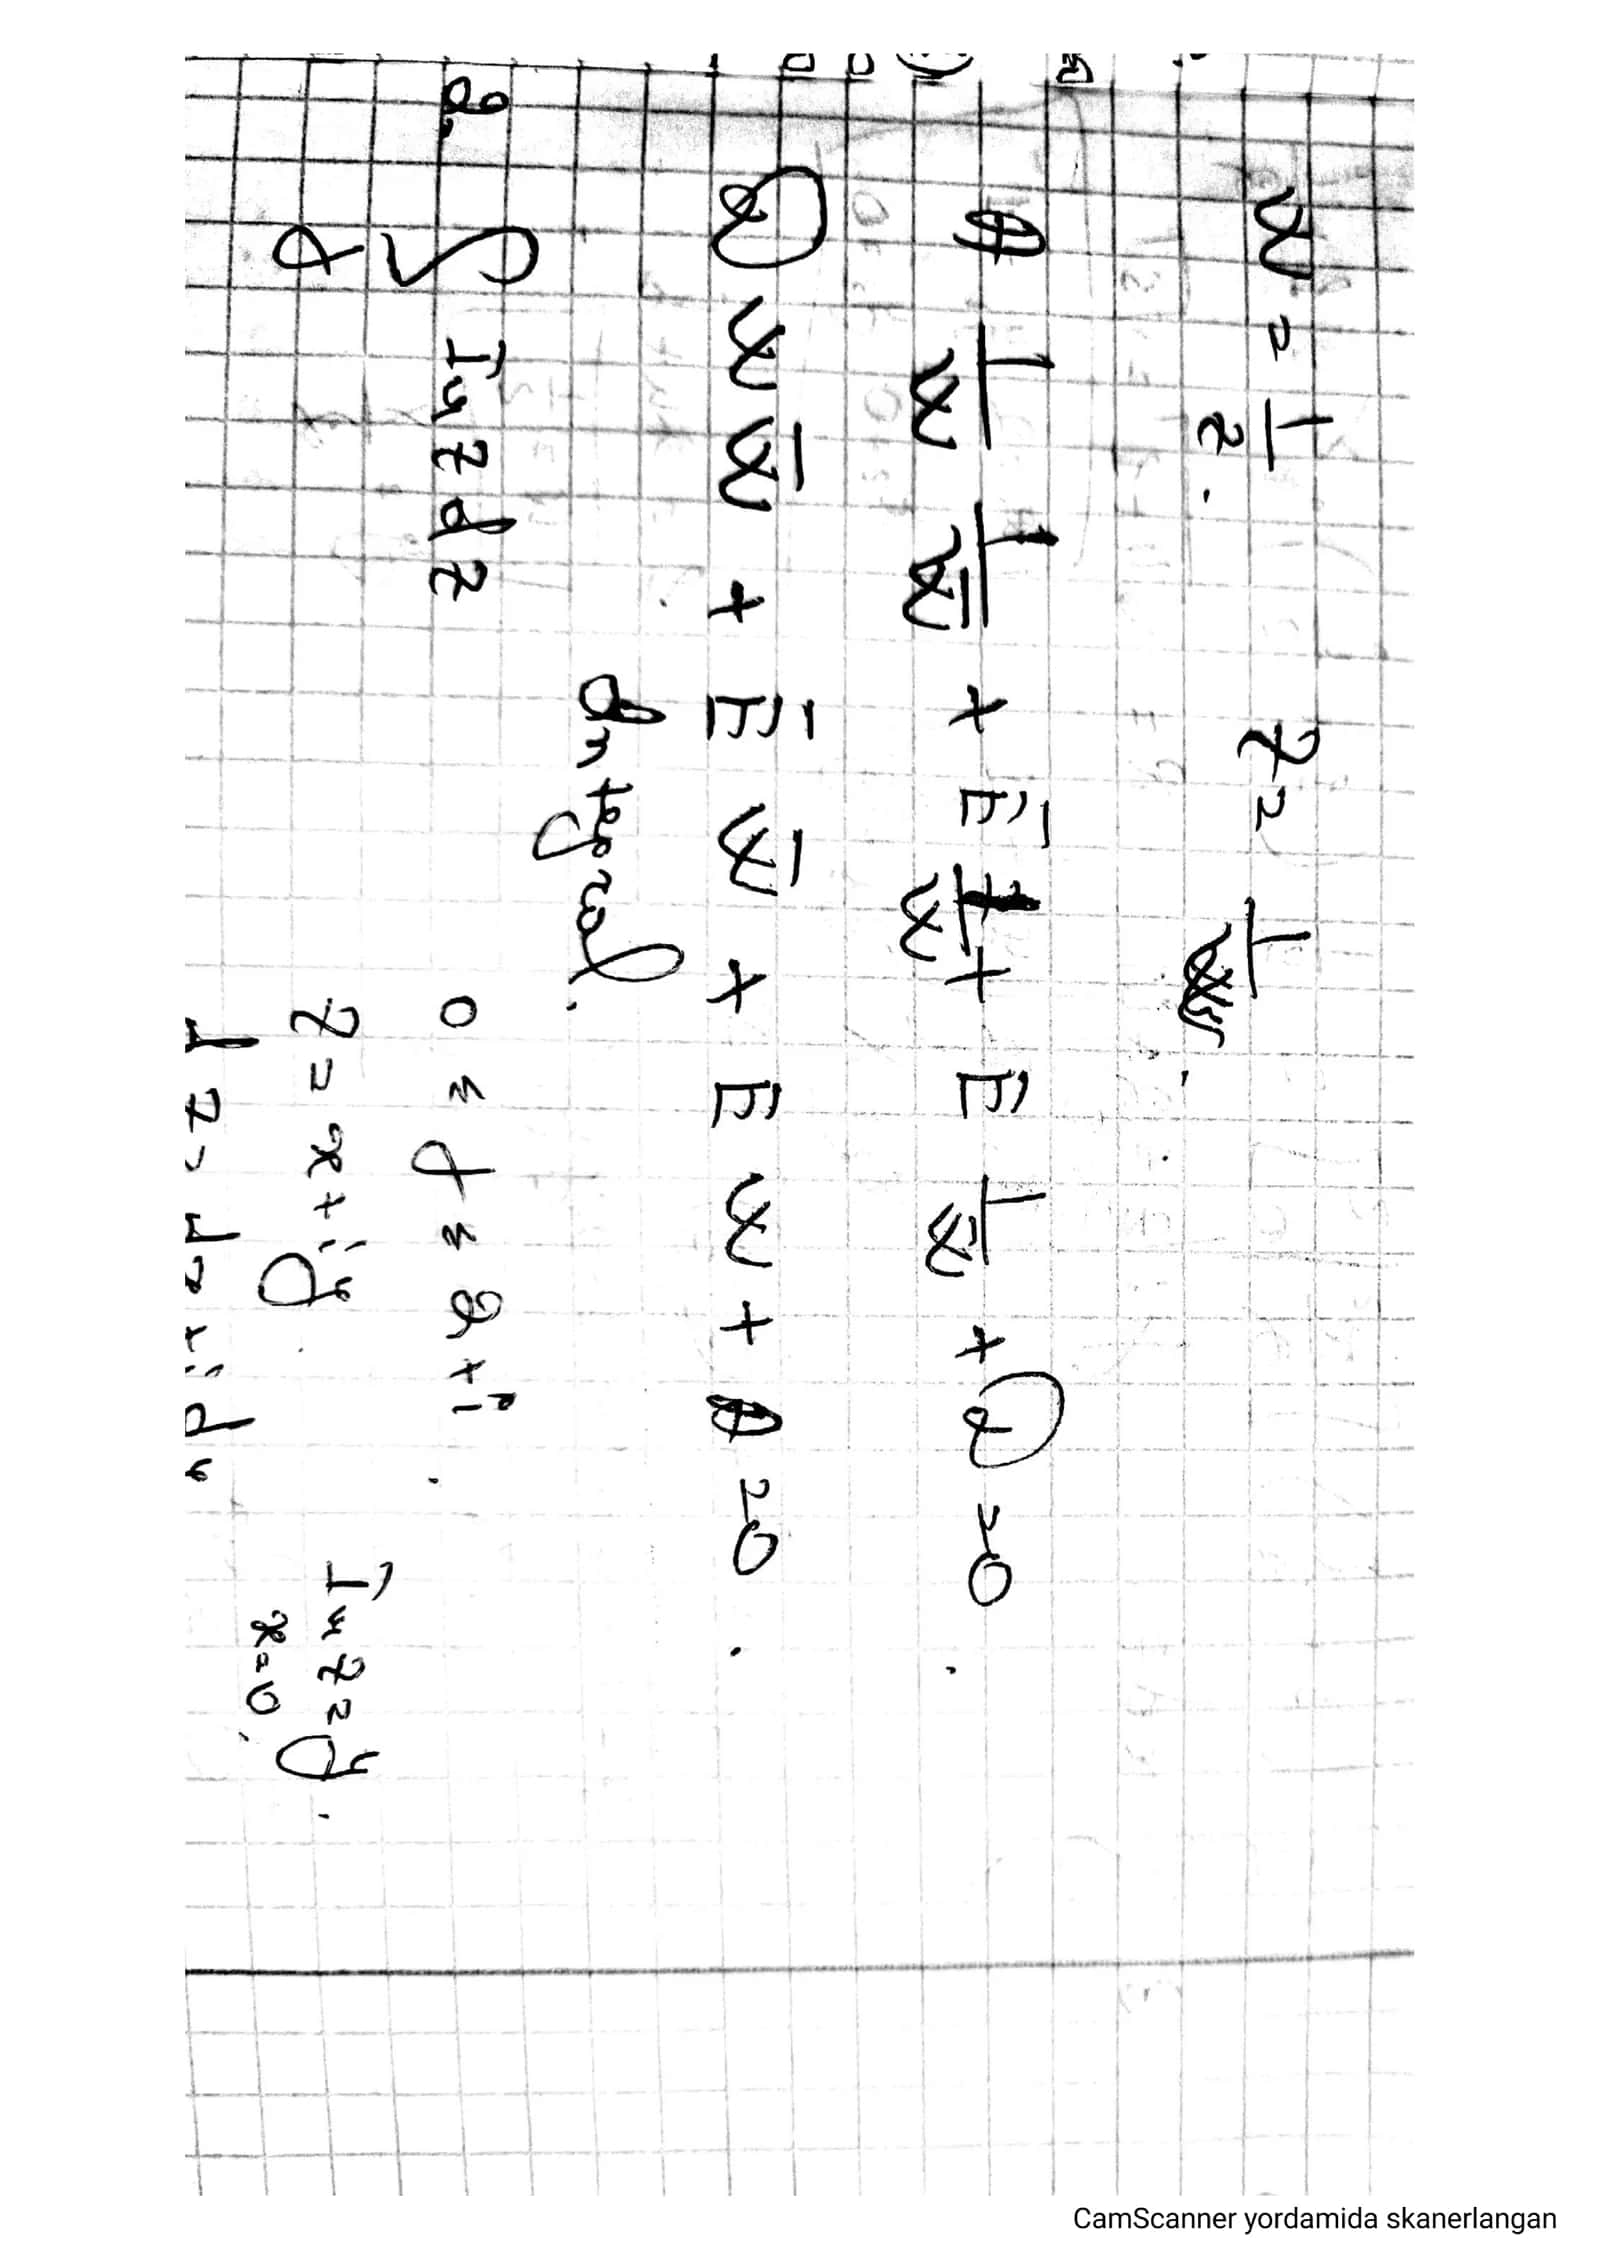 w = 1/z . z = 1/w .
A 1/w 1/w̅ + E̅ 1/w + E 1/w̅ + D = 0 .
D w w̅ + E̅ w̅ + E w + A = 0 .
Integral .
8. ∫ Im z dz 0 ≤ t ≤ 2+i .
z = x + iy Im z = y .
x = 0 .
dz = dx + i dy
CamScanner yordamida skanerlangan